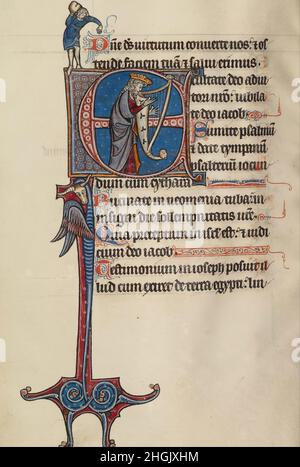 Dñe ds uirtutum conuerte nos: et os
tende faciem tuā et salui erimus.
Exultate deo adiu
tori nr̄o: iubila
te deo iacob.
Sumite psalmū
et date tympanū
psalterium iocun
dum cum cythara.
Bucinate in neomenia tuba: in
insigni die sollempnitatis ur̄e.
Quia preceptum in isrl̄ est: et iudi
cium deo iacob.
Testimonium in ioseph posuit il
lud cum exiret de terra egypti: lin
alamy
Image ID: 2HGJXHM
www.alamy.com